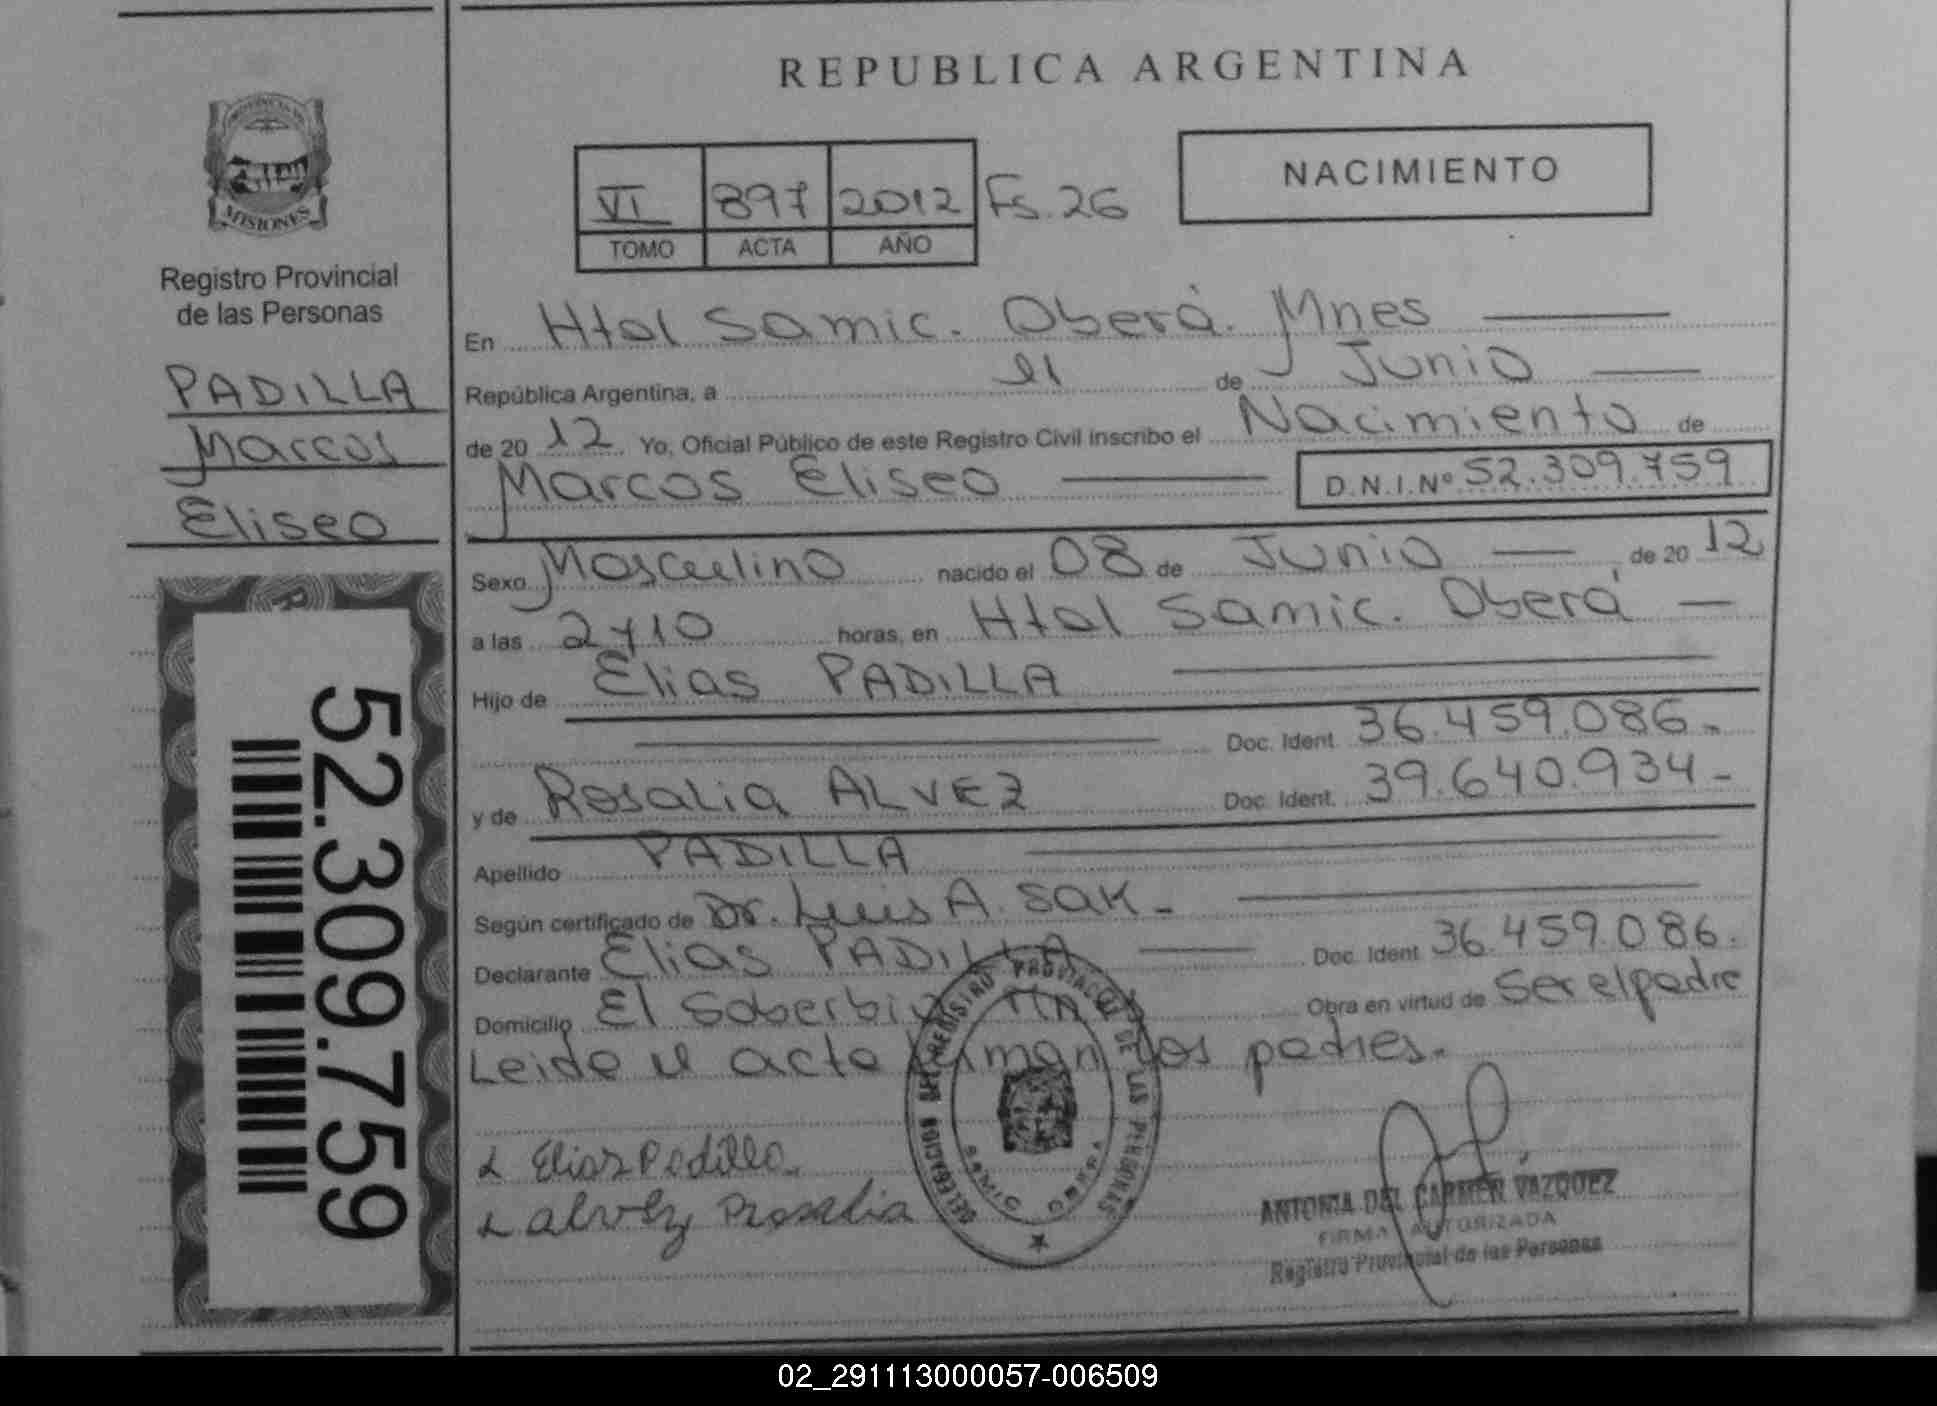 PROVINCIA DE
MISIONES
Registro Provincial
de las Personas
PADILLA
Marcos
Eliseo
52.309.759
REPUBLICA ARGENTINA
VI 897 2012 Fs. 26
TOMO ACTA AÑO
NACIMIENTO
En Htal Samic. Oberá. Mnes
República Argentina, a de Junio
de 20 12 Yo, Oficial Público de este Registro Civil inscribo el Nacimiento de
Marcos Eliseo D.N.I.Nº 52.309.759
Sexo Masculino nacido el 08 de Junio de 20 12
a las 2 y 10 horas, en Htal Samic. Oberá
Hijo de Elias PADILLA
Doc. Ident. 36.459.086.-
y de Rosalia ALVEZ Doc. Ident. 39.640.934-
Apellido PADILLA
Según certificado de Dr. Luis A. Sak-
Declarante Elias PADILLA Doc. Ident. 36.459.086.
Domicilio El Soberbio Obra en virtud de Ser el padre
Leida el acta firman los padres.
Elias Padilla
Alvez Rosalia
DELEGACION DEL REGISTRO PROVINCIAL DE LAS PERSONAS
SAMIC OBERA
ANTONIA DEL CARMEN VAZQUEZ
FIRMA AUTORIZADA
Registro Provincial de las Personas
02_291113000057-006509